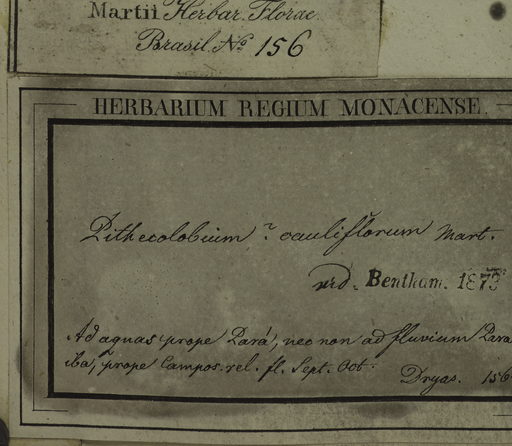 Martii Herbar. Florae
Brasil. No 156
HERBARIUM REGIUM MONACENSE.
Pithecolobium ? cauliflorum Mart.
vid. Bentham. 1873
Ad aquas prope Pará, nec non ad fluvium Para
iba, prope Campos. rel. fl. Sept. Oct.
Dryas. 156